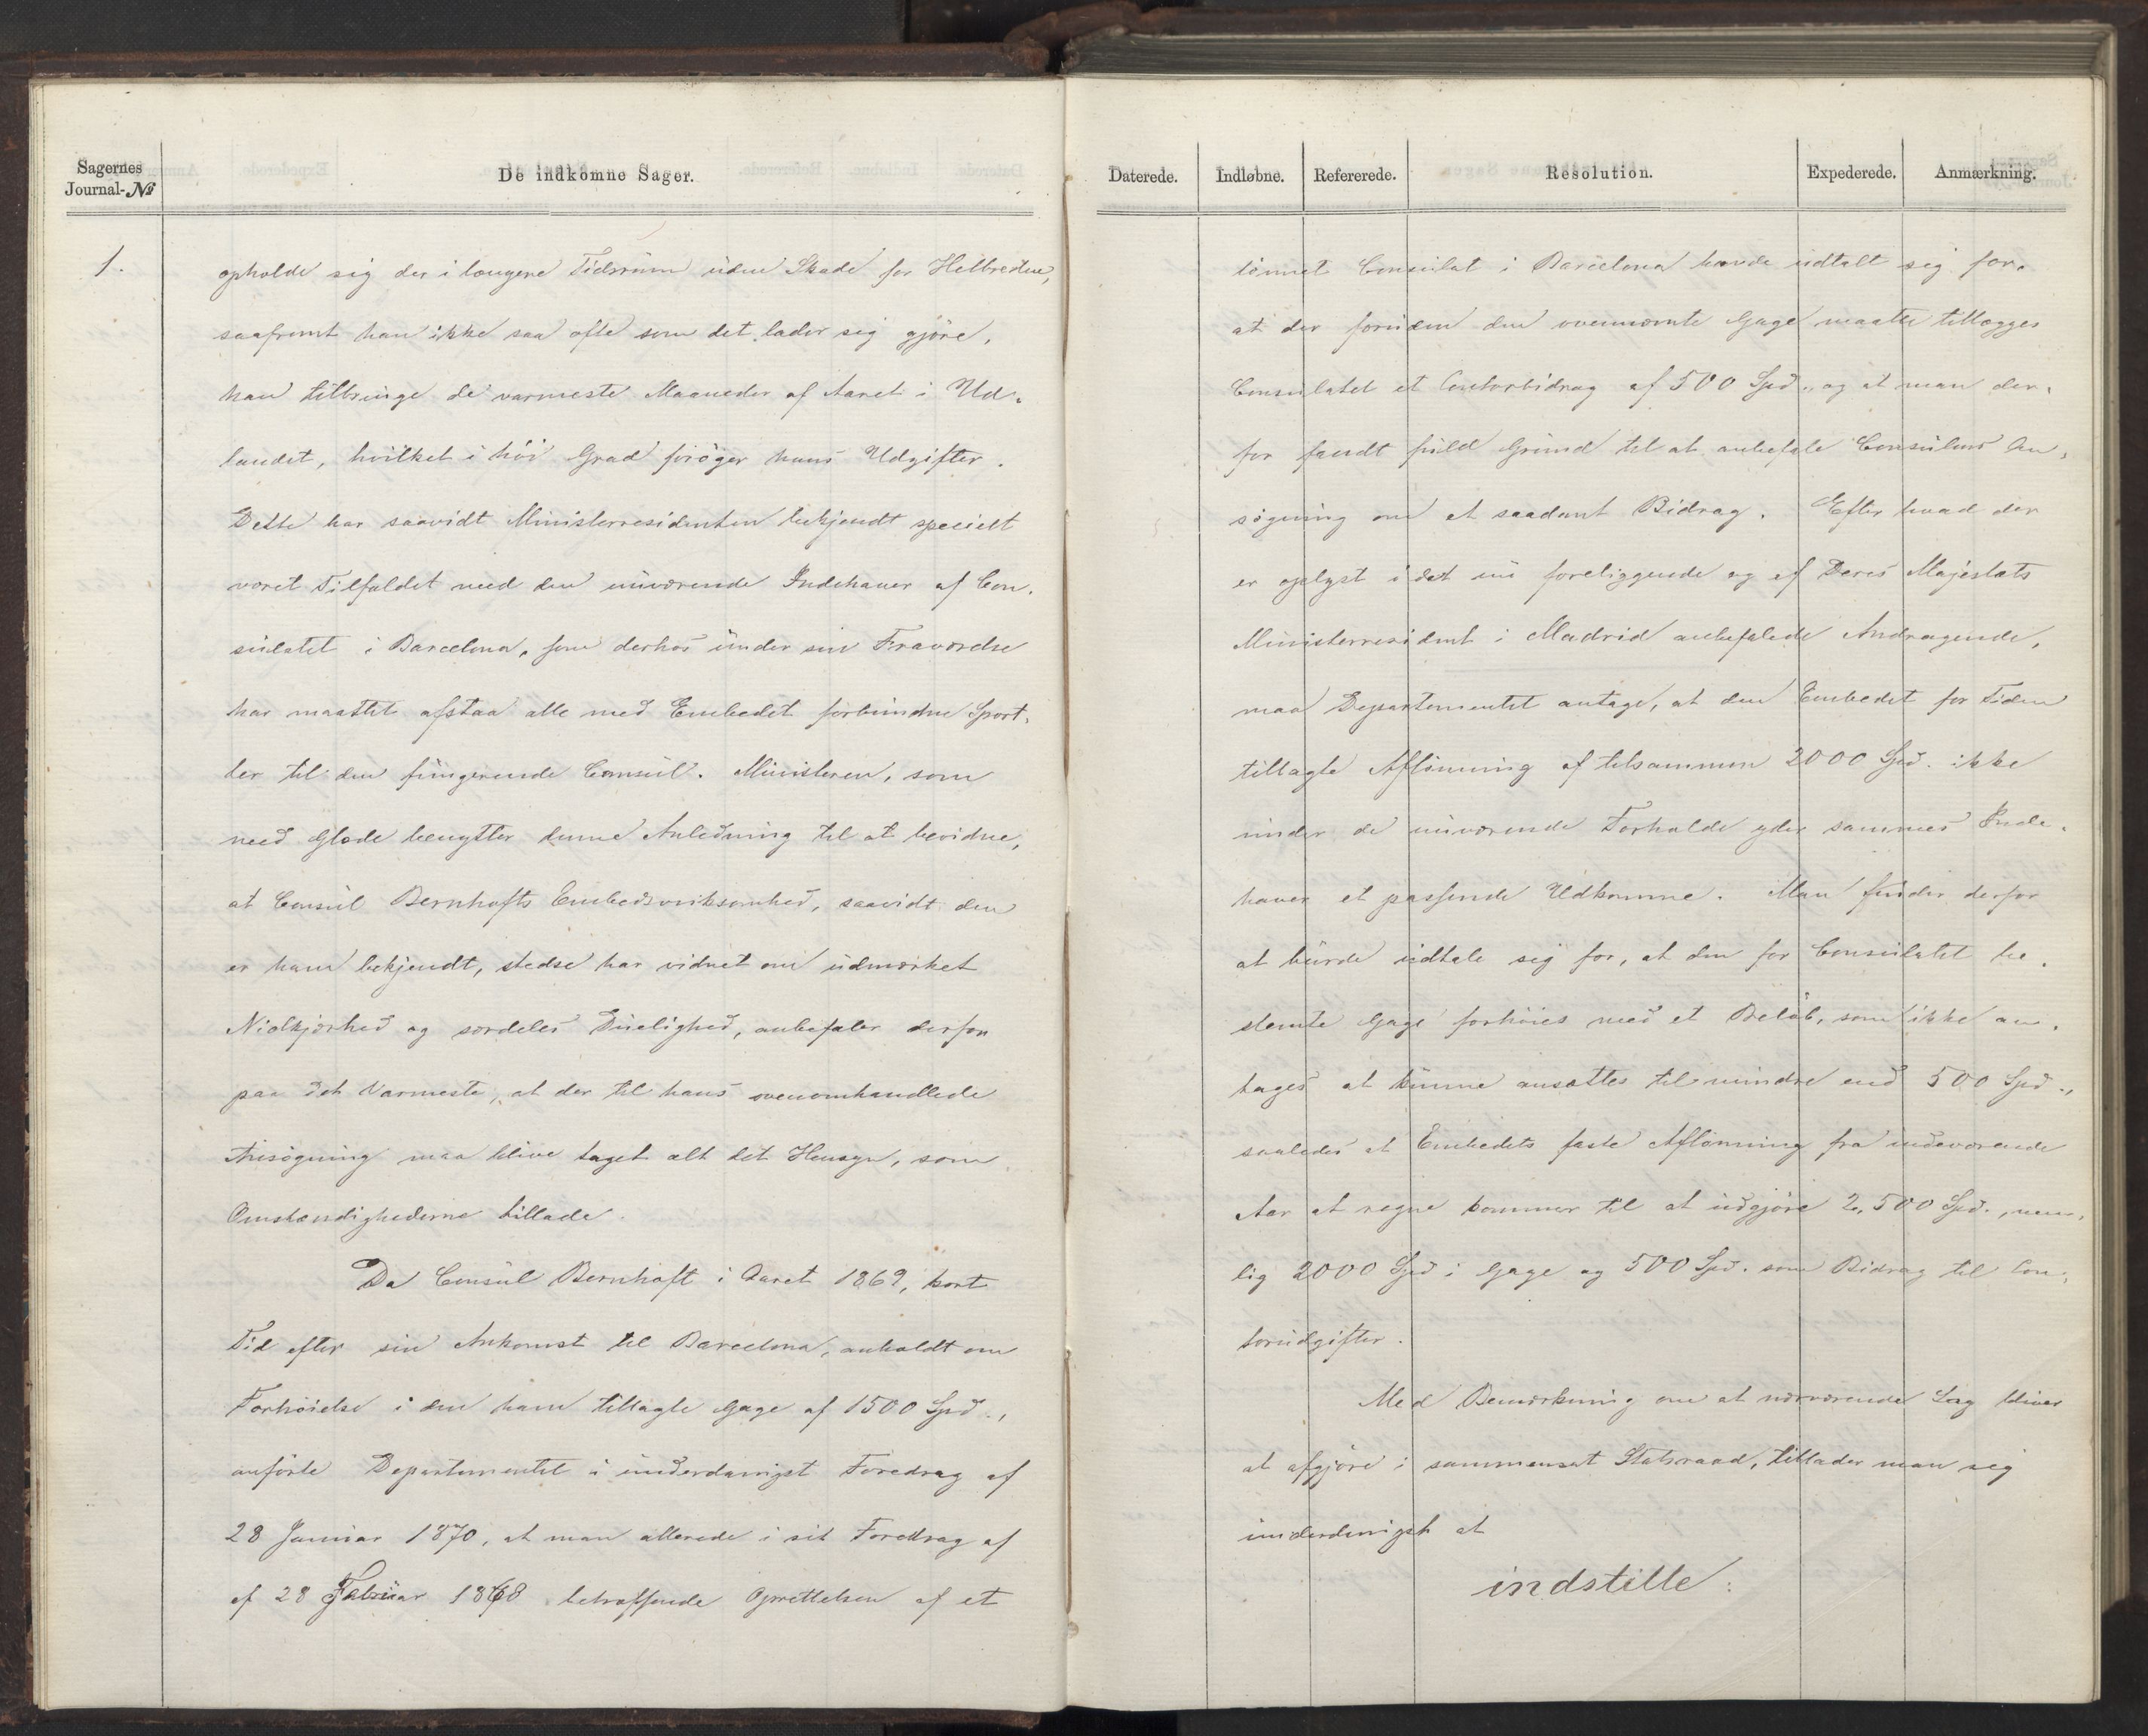 Sagernes
Journal-No
De indkomne Sager.
1.
opholde sig der i længere Tidsrum uden Skade for Helbreden,
saafremt han ikke saa ofte som det lader sig gjöre,
kan tilbringe de varmeste Maaneder af Aaret i Ud-
landet, hvilket i höi Grad foröger hans Udgifter.
Dette har saavidt Ministerresidenten bekjendt specielt
været Tilfældet med den nuværende Indehaver af Con-
sulatet i Barcelona, som derhos under sin Fraværelse
har maattet afstaa alle med Embedet forbundne Sport-
ler til den fungerende Consul. Ministeren, som
med Glæde benytter denne Anledning til at bevidne,
at Consul Bernhofts Embedsvirksomhed, saavidt den
er ham bekjendt, stedse har vidnet om udmærket
Nidkjærhed og særdeles Duelighed, anbefaler derfor
paa det Varmeste, at der til hans ovenomhandlede
Ansögning maa blive taget alt det Hensyn, som
Omstændighederne tillade.
Da Consul Bernhoft i Aaret 1869, kort
Tid efter sin Ankomst til Barcelona, anholdt om
Forhöielse i den ham tillagte Gage af 1500 Spd.,
anförte Departementet i underdanigst Foredrag af
28 Januar 1870, at man allerede i sit Foredrag af
af 28 Februar 1868 betræffende Oprettelsen af et
Daterede.
Indløbne.
Refererede.
Resolution.
Expederede.
Anmærkning.
lönnet Consulat i Barcelona havde udtalt sig for,
at der foruden den ovennævnte Gage maatte tillægges
Consulatet et Contorbidrag af 500 Spd., og at man der-
for fandt fuld Grund til at anbefale Consulens An-
sögning om et saadant Bidrag. Efter hvad der
er oplyst i det nu foreliggende og af Deres Majestæts
Ministerresident i Madrid anbefalede Andragende,
maa Departementet antage, at den Embedet for Tiden
tillagte Aflönning af tilsammen 2000 Spd. ikke
under de nuværende Forholde yder sammes Inde-
haver et passende Udkomme. Man finder derfor
at burde udtale sig for, at den for Consulatet be-
stemte Gage forhöies med et Belöb, som ikke an-
tages at kunne ansættes til mindre end 500 Spd.,
saaledes at Embedets faste Aflönning fra indeværende
Aar at regne kommer til at udgjöre 2,500 Spd., nem-
lig 2000 Spd i Gage og 500 Spd. som Bidrag til Con-
torudgifter.
Med Bemærkning om at nærværende Sag bliver
at afgjöre i sammensat Statsraad, tillader man sig
underdanigst at
indstille: